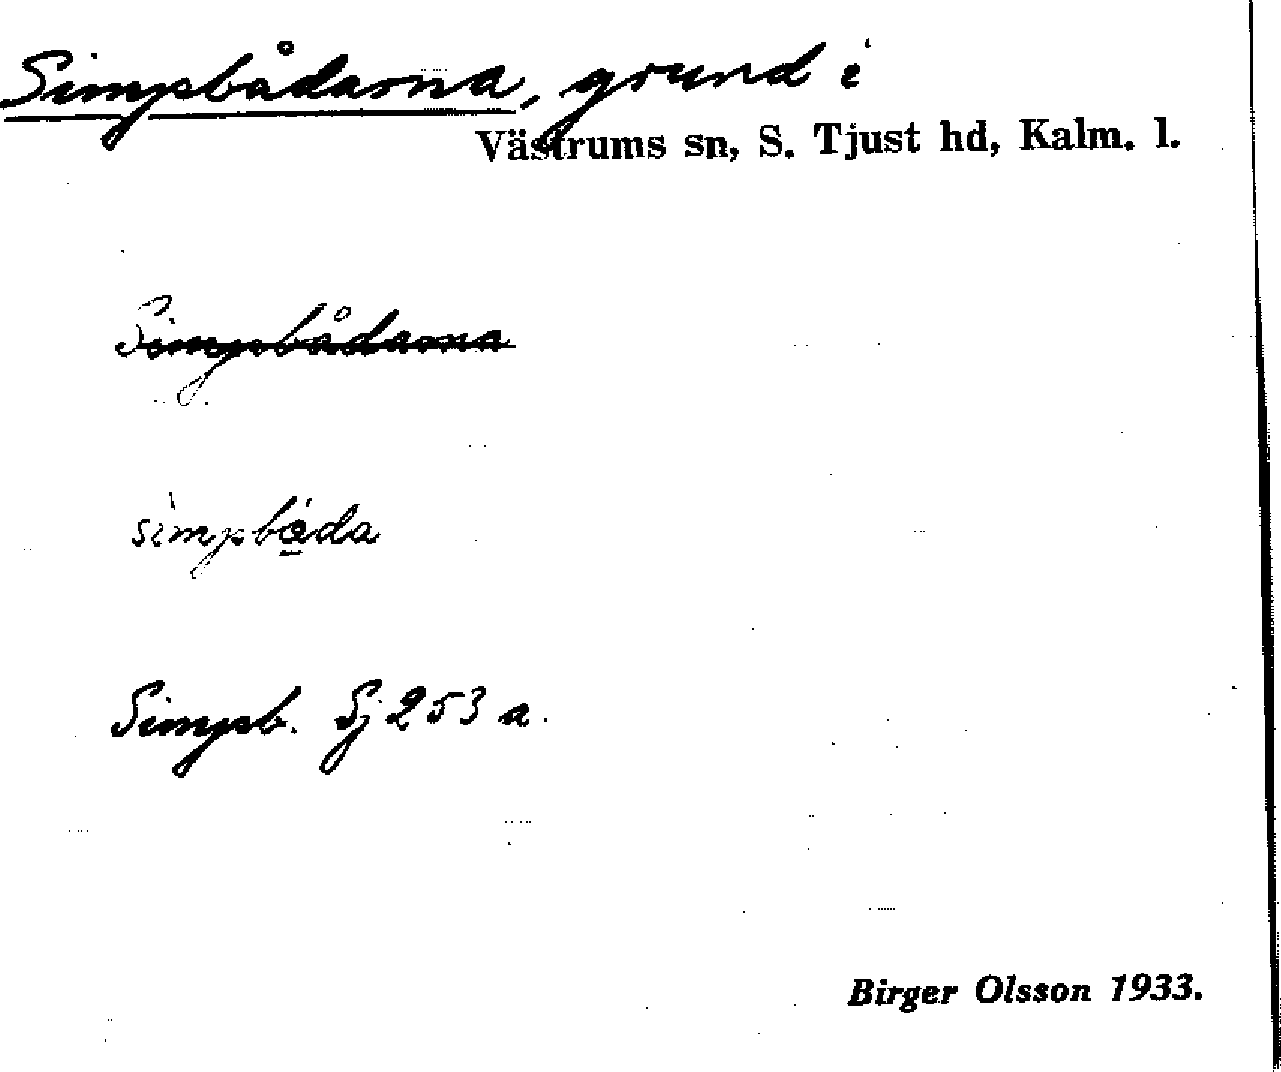 Simpbådarna, grund i
Västrums sn, S. Tjust hd, Kalm. l.
Simpbådarna
simpbåda
Simpb. Sj 253 a.
Birger Olsson 1933.